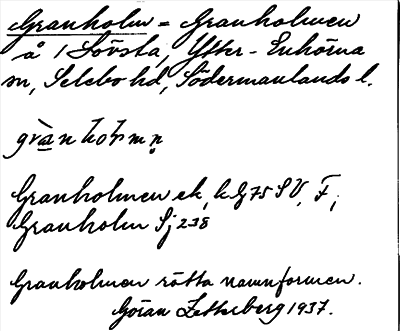 Granholm = Granholmen
å 1 Sörsta, Ytter-Enhörna
sn, Selebo hd, Södermanlands l.
Granholmen ek, k G 75 SV, F;
Granholm Sj 238
Granholmen rätta namnformen.
Göran Zetterberg 1937.